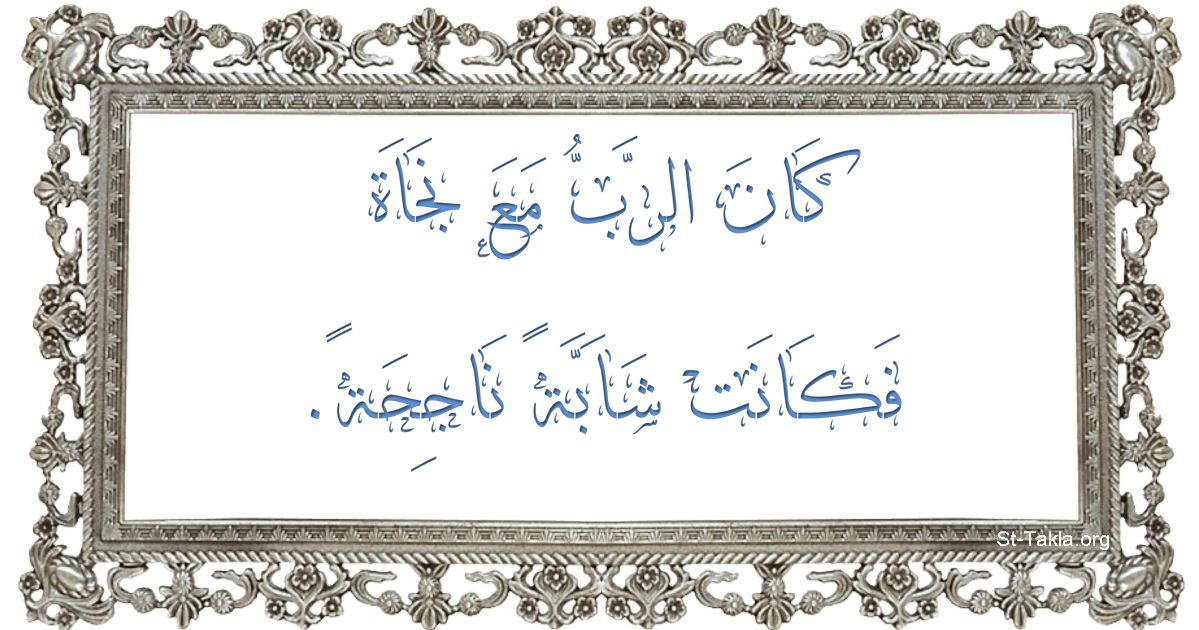 كَانَ الرَّبُّ مَعَ نَجَاَة
فَكَانَت شَاَبَّةً نَاجِحَةً.
St-Takla.org